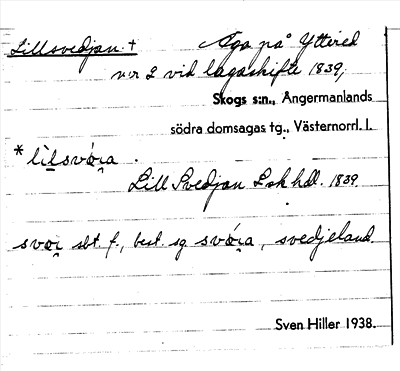 Lillsvedjan. † Äga på Yttered
n:r 2 vid lagaskifte 1839;
Skogs s:n., Ångermanlands
södra domsagas tg., Västernorrl. l.
* lilsvǿra .
Lill Svedjan Lsk hdl. 1839
svør sbt. f., best. sg svǿra, svedjeland.
Sven Hiller 1938.